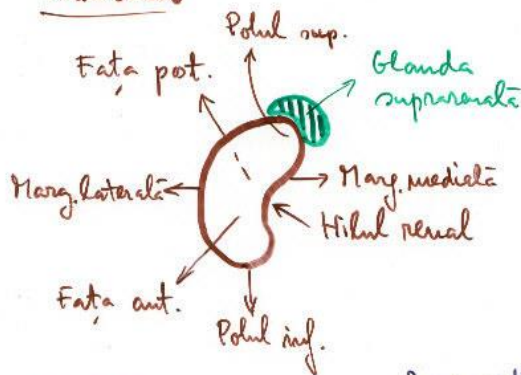 Polul sup.
Fața post.
Glanda
suprarenală
Marg. laterală
Marg. medială
Hilul renal
Fața ant.
Polul inf.